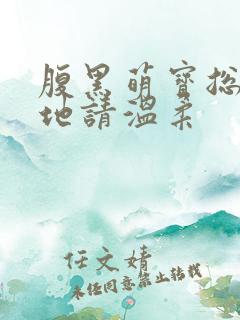 腹黑萌寶總
地請溫柔
任文婧
未经同意禁止转载